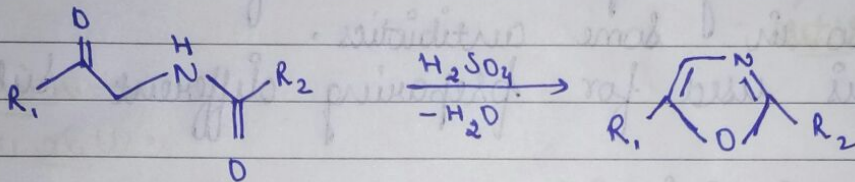 O
H
N
R₁
R₂
O
H₂SO₄
-H₂O
N
R₁
O
R₂